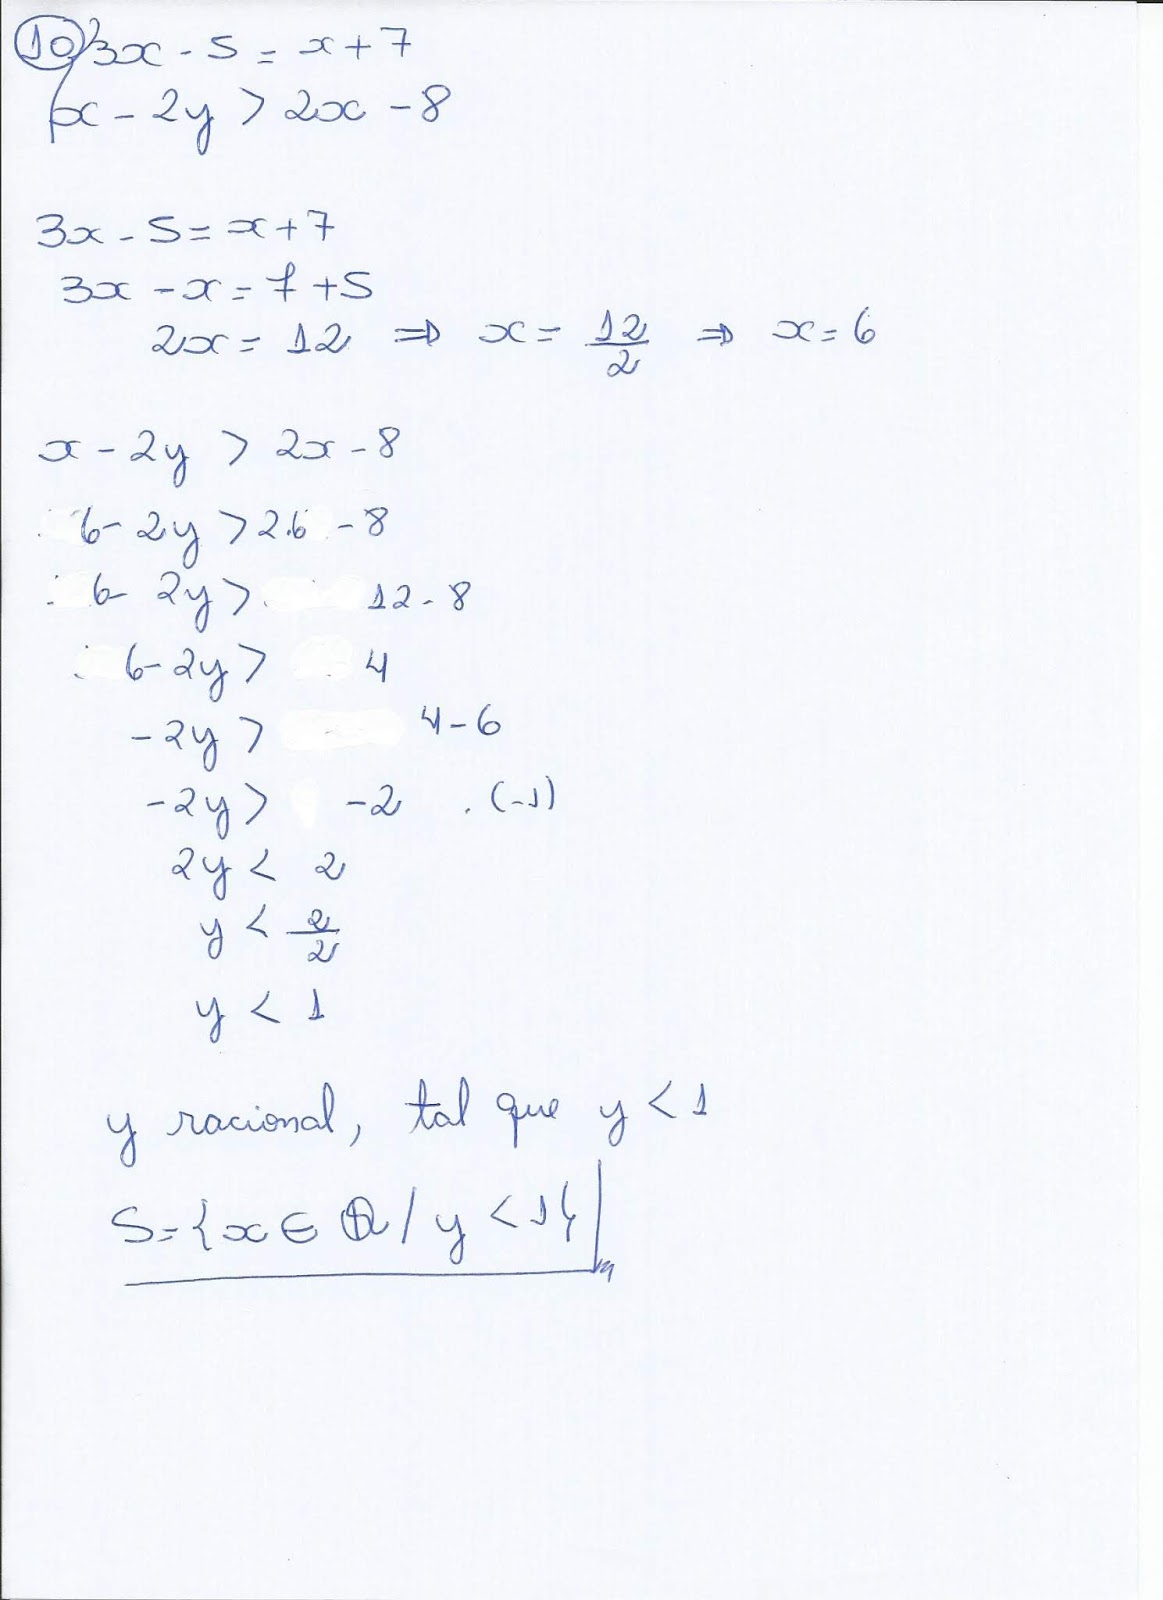 10) 3x - 5 = x + 7
x - 2y > 2x - 8
3x - 5 = x + 7
3x - x = 7 + 5
2x = 12 ⇒ x = 12/2 ⇒ x = 6
x - 2y > 2x - 8
6 - 2y > 2.6 - 8
6 - 2y > 12 - 8
6 - 2y > 4
-2y > 4 - 6
-2y > -2 .(-1)
2y < 2
y < 2/2
y < 1
y racional, tal que y < 1
S = {x ∈ Q / y < 1}